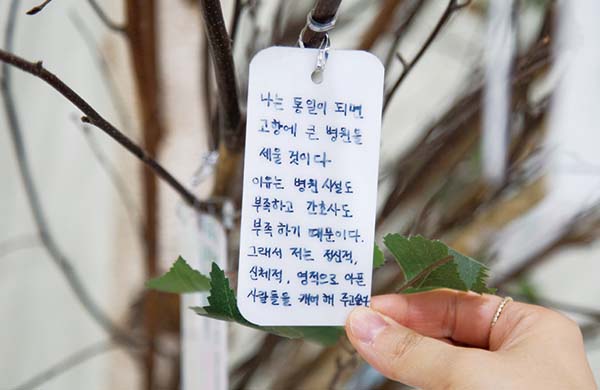 나는 통일이 되면
고향에 큰 병원을
세울 것이다
이유는 병원 시설도
부족하고 간호사도
부족하기 때문이다.
그래서 저는 정신적,
신체적, 영적으로 아픈
사람들을 케어해 주고싶다